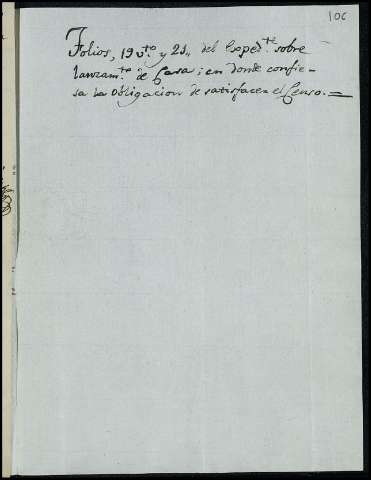 106
Folios, 19 v.to y 21,, del Exped.te sobre
lanzam.to de Casa; en donde confie-
sa la obligacion de satisfacer el Censo.=